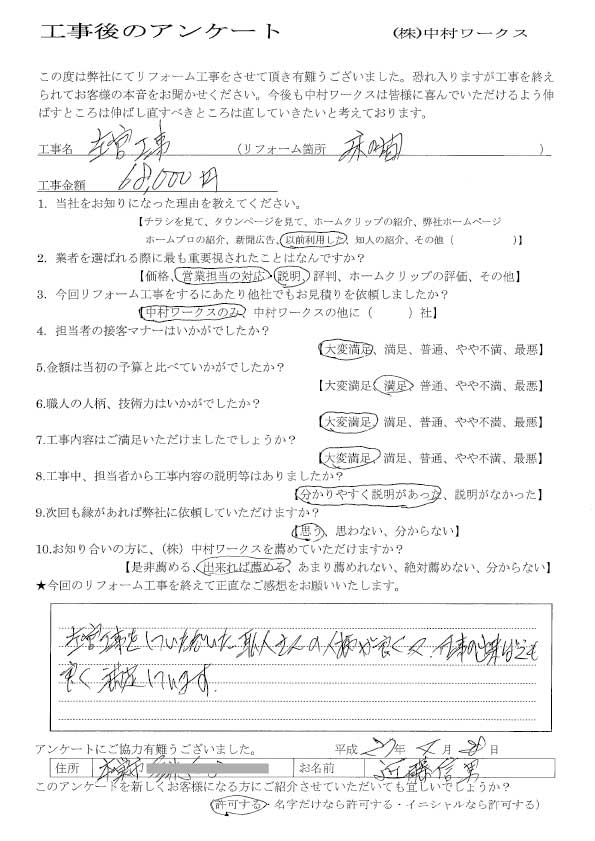 工事後のアンケート (株)中村ワークス
この度は弊社にてリフォーム工事をさせて頂き有難うございました。恐れ入りますが工事を終え
られてお客様の本音をお聞かせください。今後も中村ワークスは皆様に喜んでいただけるよう伸
ばすところは伸ばし直すべきところは直していきたいと考えております。
工事名 左官工事 (リフォーム箇所 )
工事金額 68,000円
1. 当社をお知りになった理由を教えてください。
【チラシを見て、タウンページを見て、ホームクリップの紹介、弊社ホームページ
ホームプロの紹介、新聞広告、以前利用した、知人の紹介、その他( )】
2. 業者を選ばれる際に最も重要視されたことはなんですか?
【価格、営業担当の対応・説明、評判、ホームクリップの評価、その他】
3. 今回リフォーム工事をするにあたり他社でもお見積りを依頼しましたか?
【中村ワークスのみ、中村ワークスの他に( )社】
4. 担当者の接客マナーはいかがでしたか?
【大変満足、満足、普通、やや不満、最悪】
5.金額は当初の予算と比べていかがでしたか?
【大変満足、満足、普通、やや不満、最悪】
6.職人の人柄、技術力はいかがでしたか?
【大変満足、満足、普通、やや不満、最悪】
7.工事内容はご満足いただけましたでしょうか?
【大変満足、満足、普通、やや不満、最悪】
8.工事中、担当者から工事内容の説明等はありましたか?
【分かりやすく説明があった、説明がなかった】
9.次回も縁があれば弊社に依頼していただけますか?
【思う、思わない、分からない】
10.お知り合いの方に、(株)中村ワークスを薦めていただけますか?
【是非薦める、出来れば薦める、あまり薦めれない、絶対薦めない、分からない】
★今回のリフォーム工事を終えて正直なご感想をお願いいたします。
左官工事をしていただいた職人さんの人柄が良く、仕事の出来ばえも
良く満足しています。
アンケートにご協力有難うございました。 平成27年 月28日
住所 本巣市 お名前 近藤信男
このアンケートを新しくお客様になる方にご紹介させていただいても宜しいでしょうか?
(許可する・名字だけなら許可する・イニシャルなら許可する)